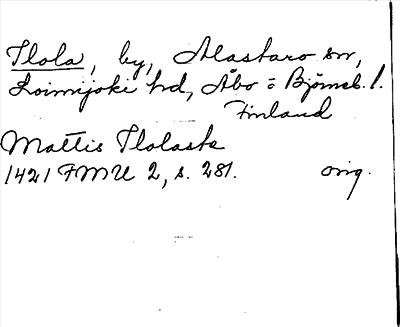 Ilola, by, Alastaro sn,
Loimijoki hd, Åbo o Björneb. l.
Finland
Mattis Ilolast
1421 FMU 2, s. 281. orig.